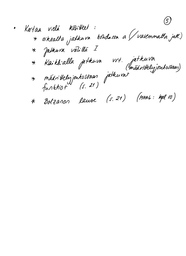 5
• Kertaa vielä käsitteet:
* oikealta jatkuva kohdassa a (/vasemmalta jatk)
* Jatkuva välillä I
* Kaikkialla jatkuva vrt. jatkuva
(määrittelyjoukossaan)
* määrittelyjoukossaan jatkuvat
funktiot (s. 21)
* Bolzanon lause (s. 21)